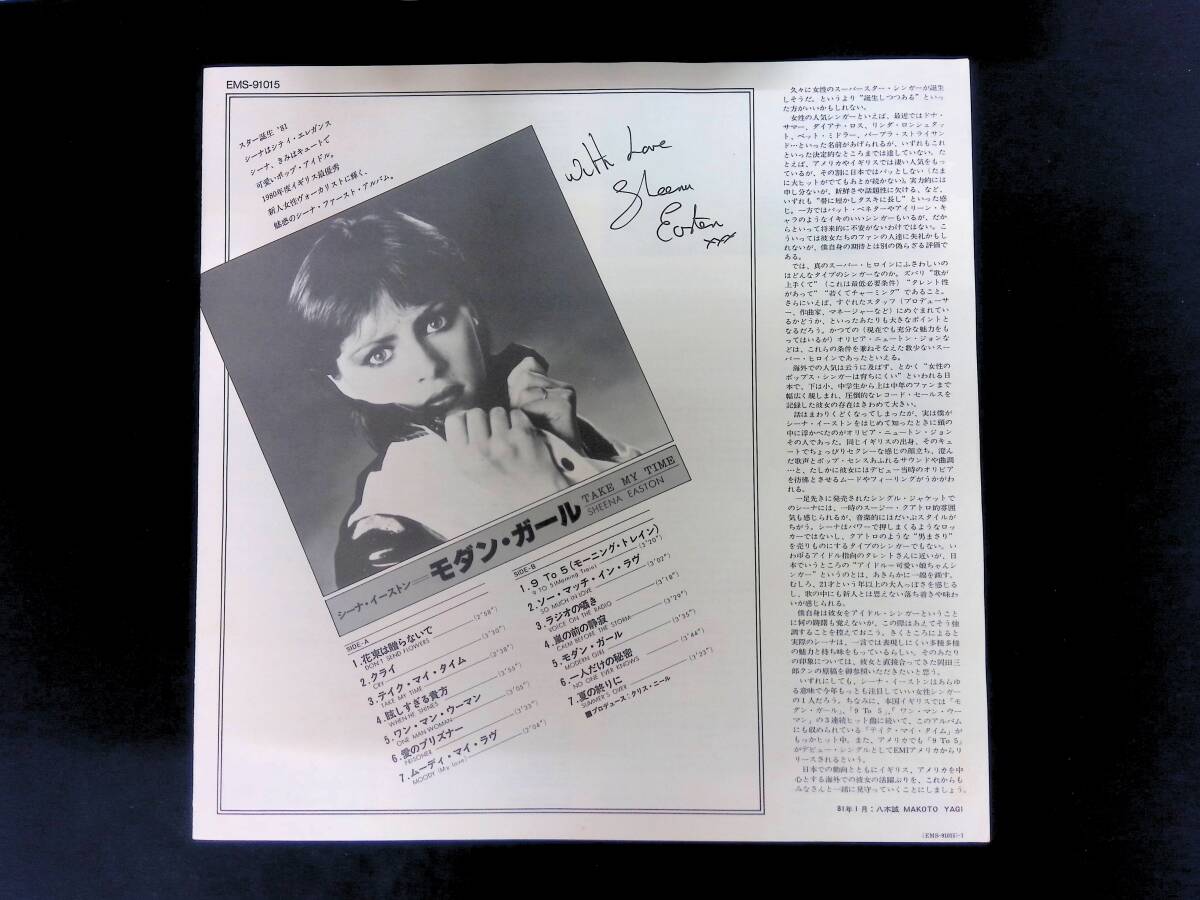 EMS-91015
スター誕生 '81
シーナはシティ・エレガンス
シーナ、きみはキュートで
可愛いポップ・アイドル。
1980年度イギリス最優秀
新人女性ヴォーカリストに輝く、
魅惑のシーナ・ファースト・アルバム。
With Love
Sheena
Easton
xxx
シーナ・イーストン=モダン・ガール
TAKE MY TIME
SHEENA EASTON
SIDE-A
1.花束は贈らないで (2'58")
DON'T SEND FLOWERS
2.クライ (3'30")
CRY
3.テイク・マイ・タイム (2'38")
TAKE MY TIME
4.眩しすぎる貴方 (3'55")
WHEN HE SHINES
5.ワン・マン・ウーマン (3'05")
ONE MAN WOMAN
6.愛のプリズナー (3'33")
PRISONER
7.ムーディ・マイ・ラヴ (2'04")
MOODY (My love)
SIDE-B
1.9 To 5(モーニング・トレイン) (3'20")
9 TO 5(Morning Train)
2.ソー・マッチ・イン・ラヴ (3'02")
SO MUCH IN LOVE
3.ラジオの囁き (3'18")
VOICE ON THE RADIO
4.嵐の前の静寂 (3'29")
CALM BEFORE THE STORM
5.モダン・ガール (3'35")
MODERN GIRL
6.一人だけの秘密 (3'44")
NO ONE EVER KNOWS
7.夏の終りに (3'23")
SUMMER'S OVER
■プロデュース：クリス・ニール
久々に女性のスーパースター・シンガーが誕生
しそうだ。というより“誕生しつつある”といっ
た方がいいかもしれない。
女性の人気シンガーといえば、最近ではドナ・
サマー、ダイアナ・ロス、リンダ・ロンシュタッ
ト、ベット・ミドラー、バーブラ・ストライサン
ド…といった名前があげられるが、いずれもこれ
といった決定的なところまでは達していない。た
とえば、アメリカやイギリスでは凄い人気をもっ
ているが、その割に日本ではパッとしない(たま
に大ヒットがでてもあとが続かない)。実力的には
申し分ないが、新鮮さや話題性に欠ける、など、
いずれも“帯に短かしタスキに長し”といった感
じ。一方ではパット・ベネターやアイリーン・キ
ャラのようなイキのいいシンガーもいるが、だか
らといって将来的に不安がないわけではない。こ
ういっては彼女たちのファンの人達に失礼かもし
れないが、僕自身の期待とは別の偽らざる評価で
ある。
では、真のスーパー・ヒロインにふさわしいの
はどんなタイプのシンガーなのか。ズバリ“歌が
上手くて”(これは最低必要条件)“タレント性
があって”“若くてチャーミング”であること。
さらにいえば、すぐれたスタッフ(プロデューサ
ー、作曲家、マネージャーなど)にめぐまれてい
るかどうか、といったあたりも大きなポイントと
なるだろう。かつての(現在でも充分な魅力をも
ってはいるが)オリビア・ニュートン・ジョンな
どは、これらの条件を兼ねそなえた数少ないスー
パー・ヒロインであったといえる。
海外での人気は云うに及ばず、とかく“女性の
ポップス・シンガーは育ちにくい”といわれる日
本で、下は小、中学生から上は中年のファンまで
幅広く親しまれ、圧倒的なレコード・セールスを
記録した彼女の存在はきわめて大きい。
話はまわりくどくなってしまったが、実は僕が
シーナ・イーストンをはじめて知ったときに頭の
中に浮かべたのがオリビア・ニュートン・ジョン
その人であった。同じイギリスの出身、そのキュ
ートでちょっぴりセクシーな感じの顔立ち、澄ん
だ歌声とポップ・センスあふれるサウンドや曲調
…と、たしかに彼女にはデビュー当時のオリビア
を彷彿とさせるムードやフィーリングがうかがわ
れる。
一足先きに発売されたシングル・ジャケットで
のシーナには、一時のスージー・クアトロ的雰囲
気も感じられるが、音楽的にはだいぶスタイルが
ちがう。シーナはパワーで押しまくるようなロッ
カーではないし、クアトロのような“男まさり”
を売りものにするタイプのシンガーでもない。い
わゆるアイドル指向のタレントさんに近いが、日
本でいうところの“アイドル＝可愛い娘ちゃんシ
ンガー”というのとは、あきらかに一線を画す。
むしろ、21才という年以上の大人っぽさを感じる
し、歌の中にも新人とは思えない落ち着きや味わ
いが感じられる。
僕自身は彼女をアイドル・シンガーということ
に何の躊躇も覚えないが、この際はあえてそう強
調することを控えておこう。きくところによると
実際のシーナは、一言では表現しにくい多種多様
の魅力と持ち味をもっているらしい。そのあたり
の印象については、彼女と直接合ってきた岡田三
郎クンの原稿を御参照いただきたいと思う。
いずれにしても、シーナ・イーストンはあらゆ
る意味で今年もっとも注目していい女性シンガー
の1人だろう。ちなみに、本国イギリスでは「モ
ダン・ガール」、「9 To 5」、「ワン・マン・ウー
マン」の3連続ヒット曲に続いて、このアルバム
にも収められている「テイク・マイ・タイム」が
もっかヒット中。また、アメリカでも「9 To 5」
がデビュー・シングルとしてEMIアメリカからリ
リースされるという。
日本での動向とともにイギリス、アメリカを中
心とする海外での彼女の活躍ぶりを、これからも
みなさんと一緒に見守っていくことにしましょう。
81年1月：八木誠 MAKOTO YAGI
(EMS-91015)-1